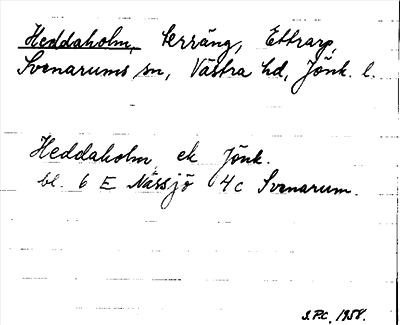 Heddaholm, terräng, Ettrarp,
Svenarums sn, Västra hd, Jönk. l.
Heddaholm ek Jönk.
bl. 6 E Nässjö 4c Svenarum.
1958.